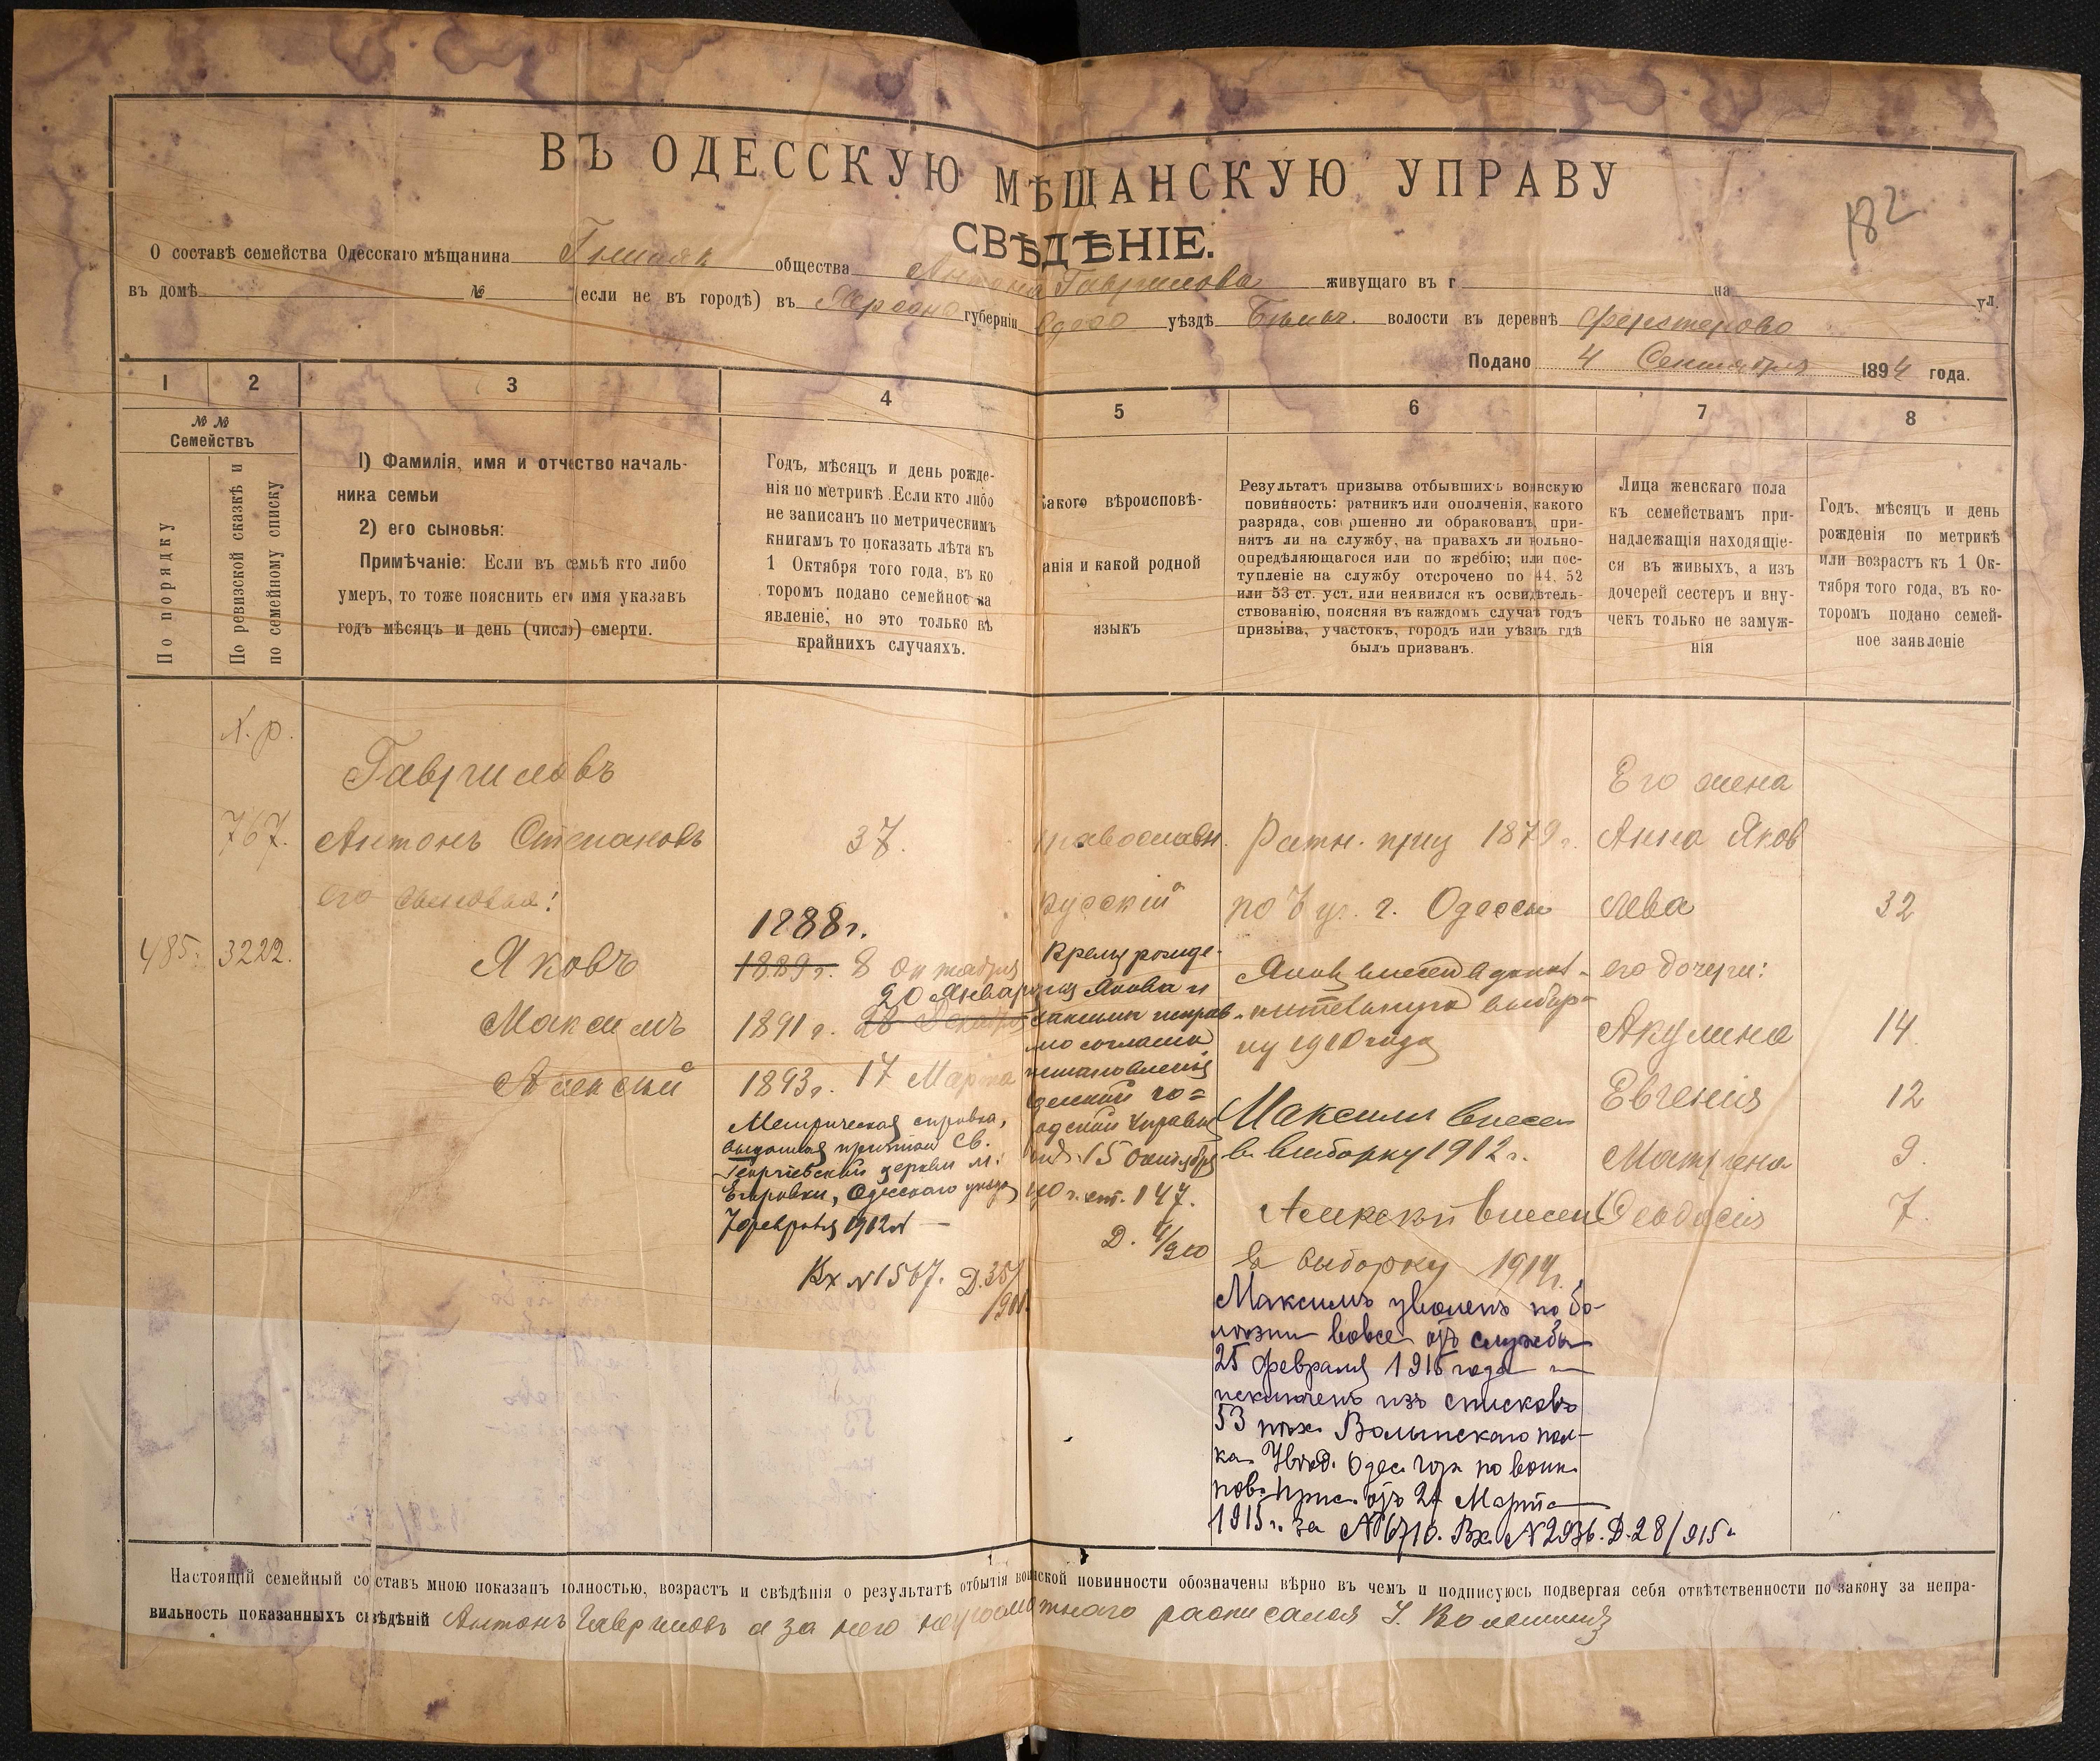 ВЪ ОДЕССКУЮ МѢЩАНСКУЮ УПРАВУ
182
СВѢДѢНІЕ.
О составѣ семейства Одесскаго мѣщанина общества Антона Гаврилова живущаго въ г на ул.
въ домѣ № (если не въ городѣ) въ Херсоно губерніи Одесс уѣздѣ волости въ деревнѣ Ферстерово
Подано 4 Сентября 1894 года.
1 2 3 4 5 6 7 8
№ № Семействъ
По порядку
По ревизской сказкѣ и по семейному списку
1) Фамилія, имя и отчество началь-
ника семьи
2) его сыновья:
Примѣчаніе: Если въ семьѣ кто либо
умеръ, то тоже пояснить его имя указавъ
годъ мѣсяцъ и день (число) смерти.
Годъ, мѣсяцъ и день рожде-
нія по метрикѣ. Если кто либо
не записанъ по метрическимъ
книгамъ то показать лѣта къ
1 Октября того года, въ ко
торомъ подано семейное за
явленіе, но это только въ
крайнихъ случаяхъ.
Какого вѣроисповѣ-
анія и какой родной
языкъ
Результатъ призыва отбывшихъ воинскую
повинность: ратникъ или ополченія, какого
разряда, совершенно ли обракованъ, при-
нятъ ли на службу, на правахъ ли вольно-
опредѣляющагося или по жребію; или пос-
тупленіе на службу отсрочено по 44, 52
или 53 ст. уст. или неявился къ освидѣтель-
ствованію, поясняя въ каждомъ случаѣ годъ
призыва, участокъ, городъ или уѣздъ гдѣ
былъ призванъ.
Лица женскаго пола
къ семействамъ при-
надлежащія находящіе-
ся въ живыхъ, а изъ
дочерей сестеръ и вну-
чекъ только не замуж-
нія
Годъ, мѣсяцъ и день
рожденія по метрикѣ
или возрастъ къ 1 Ок-
тября того года, въ ко-
торомъ подано семей-
ное заявленіе
Х.р.
Гавриловъ
767. Антонъ Степановъ 37.
его сыновья:
1888г.
485. 3222. Яковъ 1889г. 8 Октября
20 Января
Максимъ 1891г. 28 Декабря
Алексѣй 1893г. 17 Марта
Метрическая справка,
выданная причтом Св.
Георгіевской церкви м.
Егоровки, Одесскаго уезда
7 февраля 1912 г
Вх №1567. Д.35/
православн.
русскій
Время рожде-
ния Якова и
Максима исправ-
но согласно
постановления
Одесской го=
родской Управы
от 15 Октября
910 г. ст. 147.
Ратн. приз 1879г.
по уч. г. Одессы
Яков внесен в допол-
нительную выбор-
ку 1910 года
Максим внесен
в выборку 1912г.
Алексѣй внесен
в выборку 1914г.
Максимъ уволенъ по бо-
лѣзни вовсе отъ службы
25 февраля 1915 года и
исключенъ изъ списковъ
53 пѣх. Волынскаго пол-
ка. Увѣд. Одес. гор. по воин.
пов. Прис. отъ 24 Марта
1915г. за №6710. Вх. №2936. Д.28/915г
Его жена
Анна Яков
лева 32
его дочери:
Акулина 14
Евгенія 12
Матрена 9.
Феодосія 7.
Настоящій семейный составъ мною показанъ полностью, возрастъ и свѣдѣнія о результатѣ отбытія воинской повинности обозначены вѣрно въ чемъ и подписуюсь подвергая себя отвѣтственности по закону за непра-
вильность показанныхъ свѣдѣній Антонъ Гавриловъ а за него неграмотнаго росписался